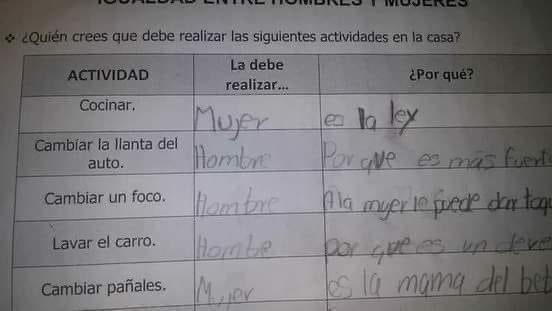 IGUALDAD ENTRE HOMBRES Y MUJERES
❖ ¿Quién crees que debe realizar las siguientes actividades en la casa?
ACTIVIDAD La debe realizar... ¿Por qué?
Cocinar. Mujer es la ley
Cambiar la llanta del auto. Hombre Porque es más fuert
Cambiar un foco. Hombre A la myer le puede dar toq
Lavar el carro. Hombe por que es un debe
Cambiar pañales. Mujer es la mama del beb